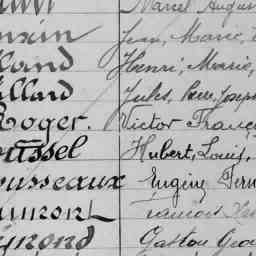 Marcel Augus
Jean, Marie,
lland Henri, Marie,
llard Jules, Pierre, Joseph
Roger. Victor Franço
oussel Hubert, Louis,
ousseaux Eugène Fern
aumont François
ymond Gaston Geo